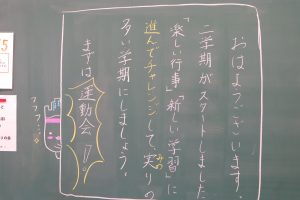 おはようございます。
二学期がスタートしました
「楽しい行事」「新しい学習」に
進んでチャレンジして、実りの
みの
多い学期にしましょう。
まずは運動会!!